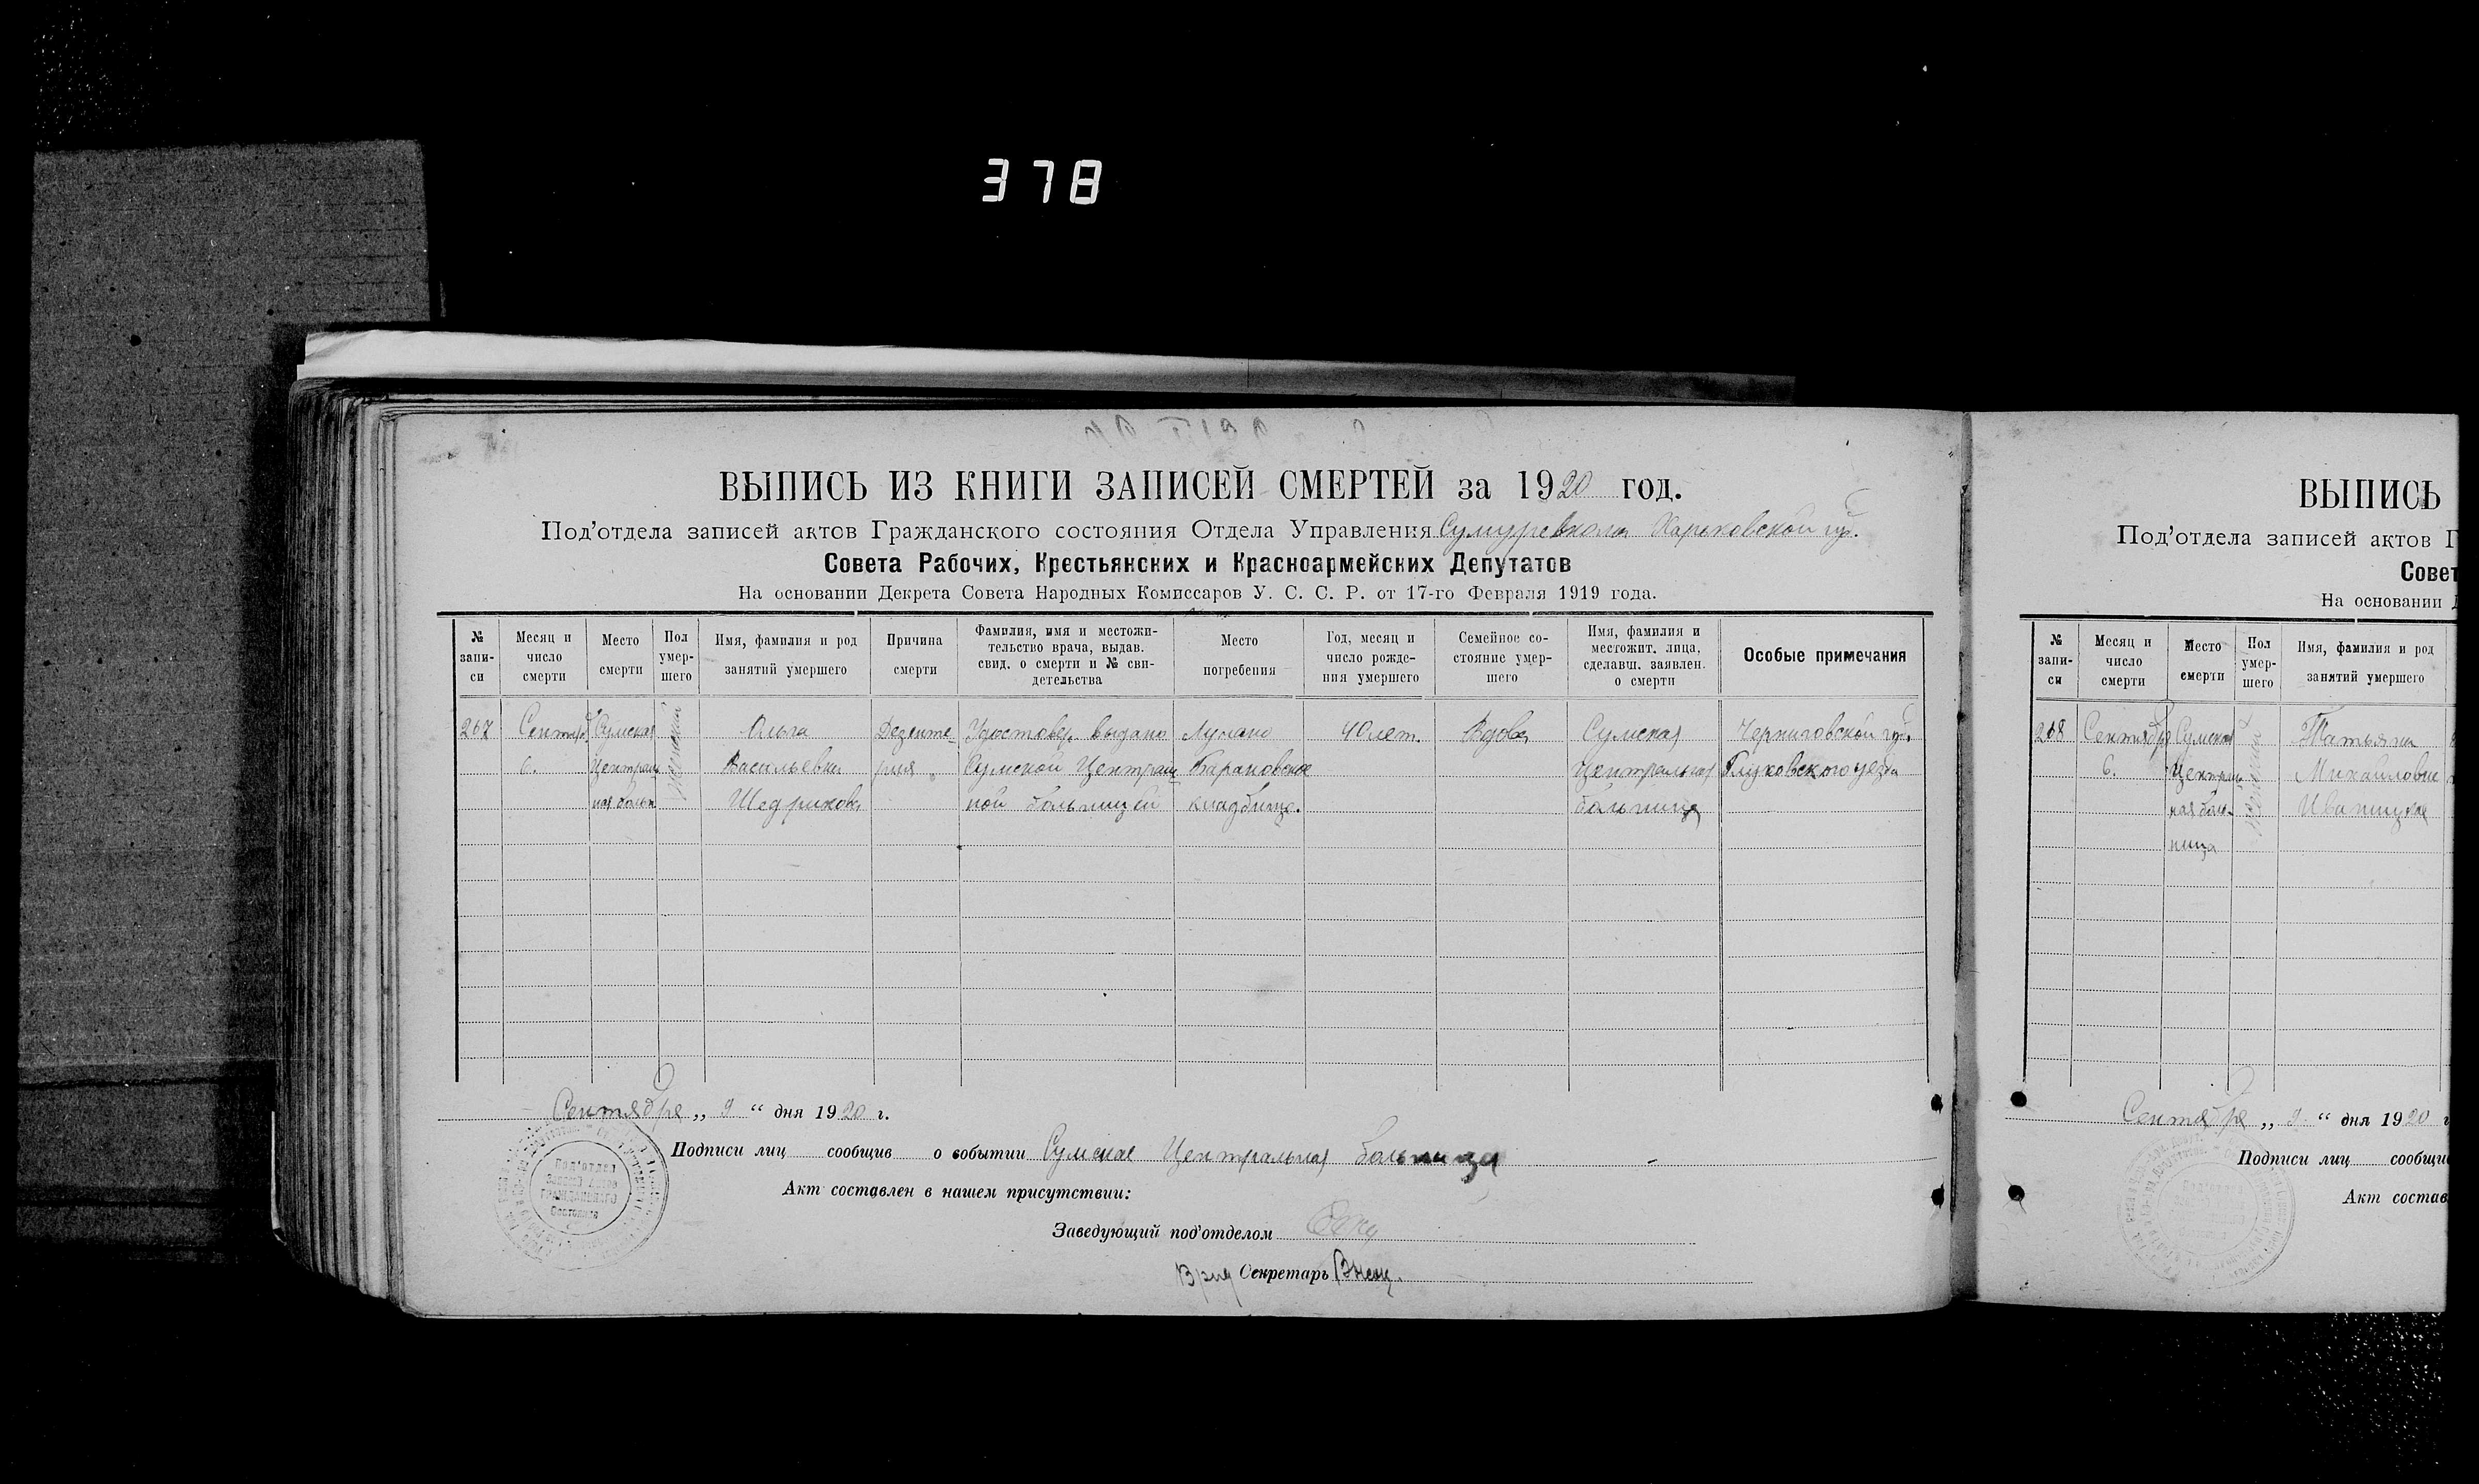 378
ВЫПИСЬ ИЗ КНИГИ ЗАПИСЕЙ СМЕРТЕЙ за 1920 год.
Под'отдела записей актов Гражданского состояния Отдела Управления Сумуревкома Харьковской губ.
Совета Рабочих, Крестьянских и Красноармейских Депутатов
На основании Декрета Совета Народных Комиссаров У. С. С. Р. от 17-го Февраля 1919 года.
№ запи-
си
Месяц и
число
смерти
Место
смерти
Пол
умер-
шего
Имя, фамилия и род
занятий умершего
Причина
смерти
Фамилия, имя и местожи-
тельство врача, выдав.
свид. о смерти и № сви-
детельства
Место
погребения
Год, месяц и
число рожде-
ния умершего
Семейное со-
стояние умер-
шего
Имя, фамилия и
местожит. лица,
сделавш. заявлен.
о смерти
Особые примечания
267
Сентяб.
6.
Сумская
Централь
ная больн
женский
Ольга
Васильевна
Щедрикова
Дезенте-
рия
Удостовер. выдано
Сумской Централь
ной больницей
Лучано
Барановское
кладбище.
40 лет.
Вдова
Сумская
центральная
больница
Черниговской губ.
Глуховского уезда
Сентября „ 9 “ дня 1920 г.
Подписи лиц сообщив о событии Сумская Центральная больница
Акт составлен в нашем присутствии:
Заведующий под'отделом
Врид Секретарь
Под'отдел
Записей Актов
ГРАЖДАНСКОГО
Состояния
ВЫПИСЬ
Под'отдела записей актов Г
Совет
На основании Д
№
запи-
си
Месяц и
число
смерти
Место
смерти
Пол
умер-
шего
Имя, фамилия и род
занятий умершего
268
Сентября
6.
Сумская
Централь
ная боль-
ница
женский
Татьяна
Михайловне
Иваницкая
Сентября „ 9 “ дня 1920 г
Подписи лиц сообщив
Акт состав